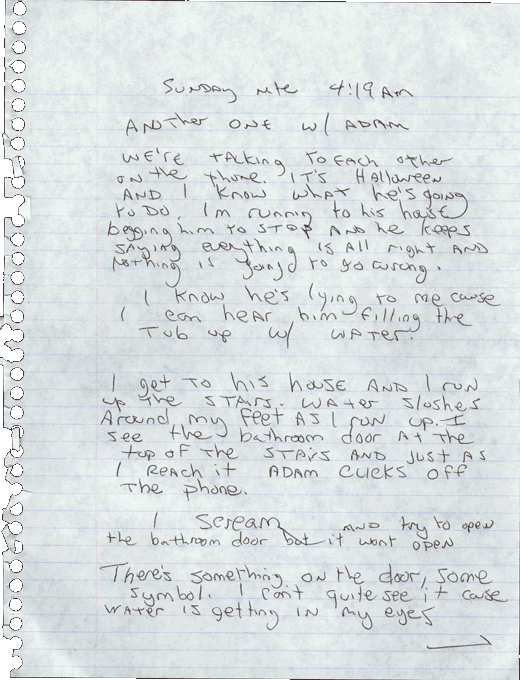 SUNDAY nite 4:19 AM
ANOTHER ONE W/ ADAM
WE'RE TALKING TO EACH OTHER
ON THE PHONE. IT'S HALLOWEEN
AND I KNOW WHAT he's going
to DO. I'm running to his house
begging him to STOP AND he keeps
SAYING everything IS All right AND
Nothing is going to go wrong.
I know he's lying to me cause
I can hear him filling the
TUB up W/ WATER.
I get TO his house AND I RUN
up The STAIRS. WATER Sloshes
Around my feet AS I run up. I
see the bathroom door AT The
top of The STAIRS AND JUST AS
I REACH it ADAM CLICKS OFF
THE phone.
I SCREAM AND try to open
the bathroom door but it wont OPEN
There's something on the door, some
symbol. I can't quite see it cause
WATER IS getting IN my eyes